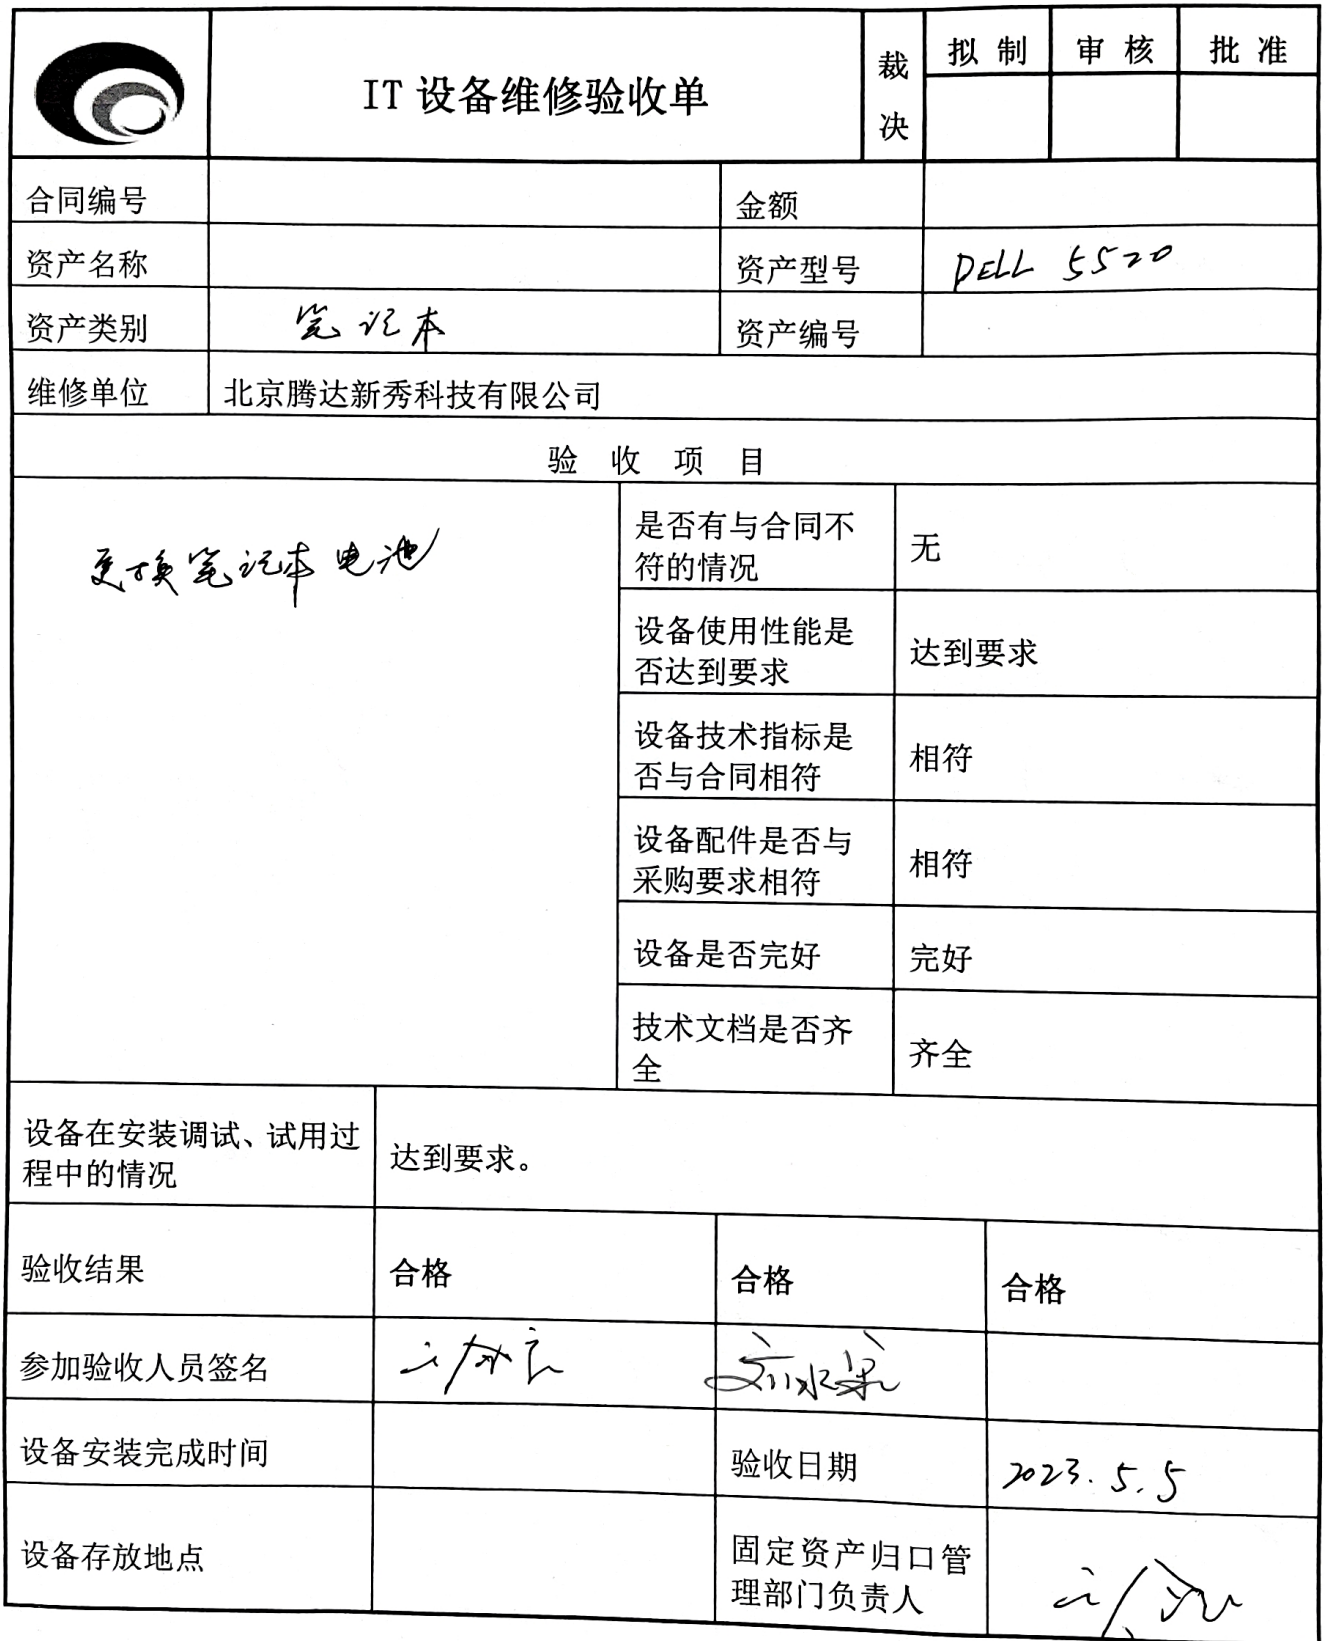 IT 设备维修验收单
裁决
拟 制
审 核
批 准
合同编号
金额
资产名称
资产型号 DELL 5520
资产类别 笔记本
资产编号
维修单位 北京腾达新秀科技有限公司
验 收 项 目
更换笔记本电池
是否有与合同不
符的情况
无
设备使用性能是
否达到要求
达到要求
设备技术指标是
否与合同相符
相符
设备配件是否与
采购要求相符
相符
设备是否完好
完好
技术文档是否齐
全
齐全
设备在安装调试、试用过
程中的情况
达到要求。
验收结果 合格 合格 合格
参加验收人员签名
设备安装完成时间
验收日期 2023.5.5
设备存放地点
固定资产归口管
理部门负责人